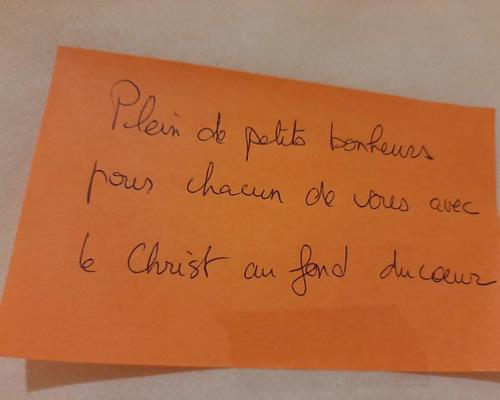 Plein de petits bonheurs
pour chacun de vous avec
le Christ au fond du cœur